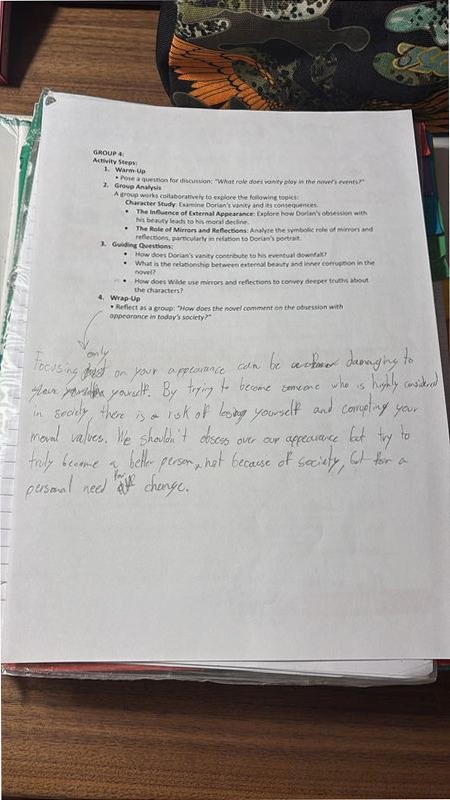 GROUP 4:
Activity Steps:
1. Warm-Up
• Pose a question for discussion: "What role does vanity play in the novel's events?"
2. Group Analysis
A group works collaboratively to explore the following topics:
Character Study: Examine Dorian's vanity and its consequences.
• The Influence of External Appearance: Explore how Dorian's obsession with
his beauty leads to his moral decline.
• The Role of Mirrors and Reflections: Analyze the symbolic role of mirrors and
reflections, particularly in relation to Dorian's portrait.
3. Guiding Questions:
• How does Dorian's vanity contribute to his eventual downfall?
• What is the relationship between external beauty and inner corruption in the
novel?
• How does Wilde use mirrors and reflections to convey deeper truths about
the characters?
4. Wrap-Up
• Reflect as a group: "How does the novel comment on the obsession with
appearance in today's society?"
only
Focusing on your appearance can be damaging to
yourself. By trying to become someone who is highly considered
in society there is a risk of losing yourself and corrupting your
moral values. We shouldn't obsess over our appearance but try to
truly become a better person, not because of society, but for a
personal need for change.